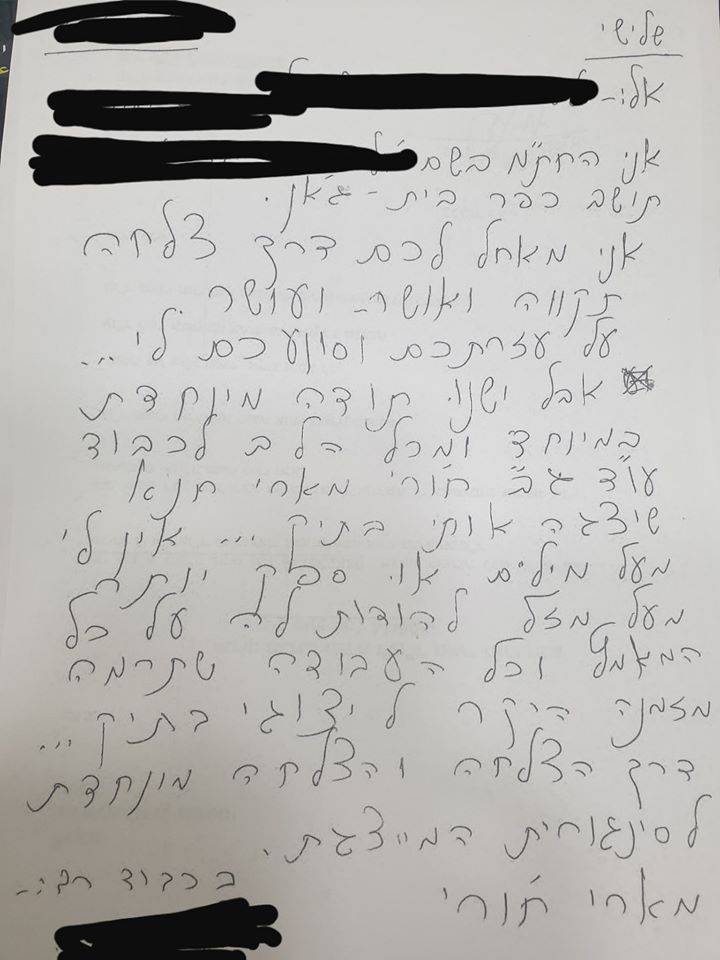 שלישי
אל:-
אני החתמ בשם
תושב כפר בית-ג'אן.
אני מאחל לכם דרך צלחה
תקווה ואושר ועושר.
על עזרתכם וסיועכם לי...
אבל ישנו תודה מיוחדת
במיוחד ומכל הלב לכבוד
עו"ד גב' ח'ורי מארי חנא
שיצגה אותי בתיק... אין לי
מעל מילים או ספק יותר
מעל מזל להודות לה על כל
המאמץ וכל העבודה שתרמה
מזמנה היקר ליצוגי בתיק...
דרך הצלחה והצלחה מיוחדת
לסינגורית המייצגת.
מארי ח'ורי
בכבוד רב:-